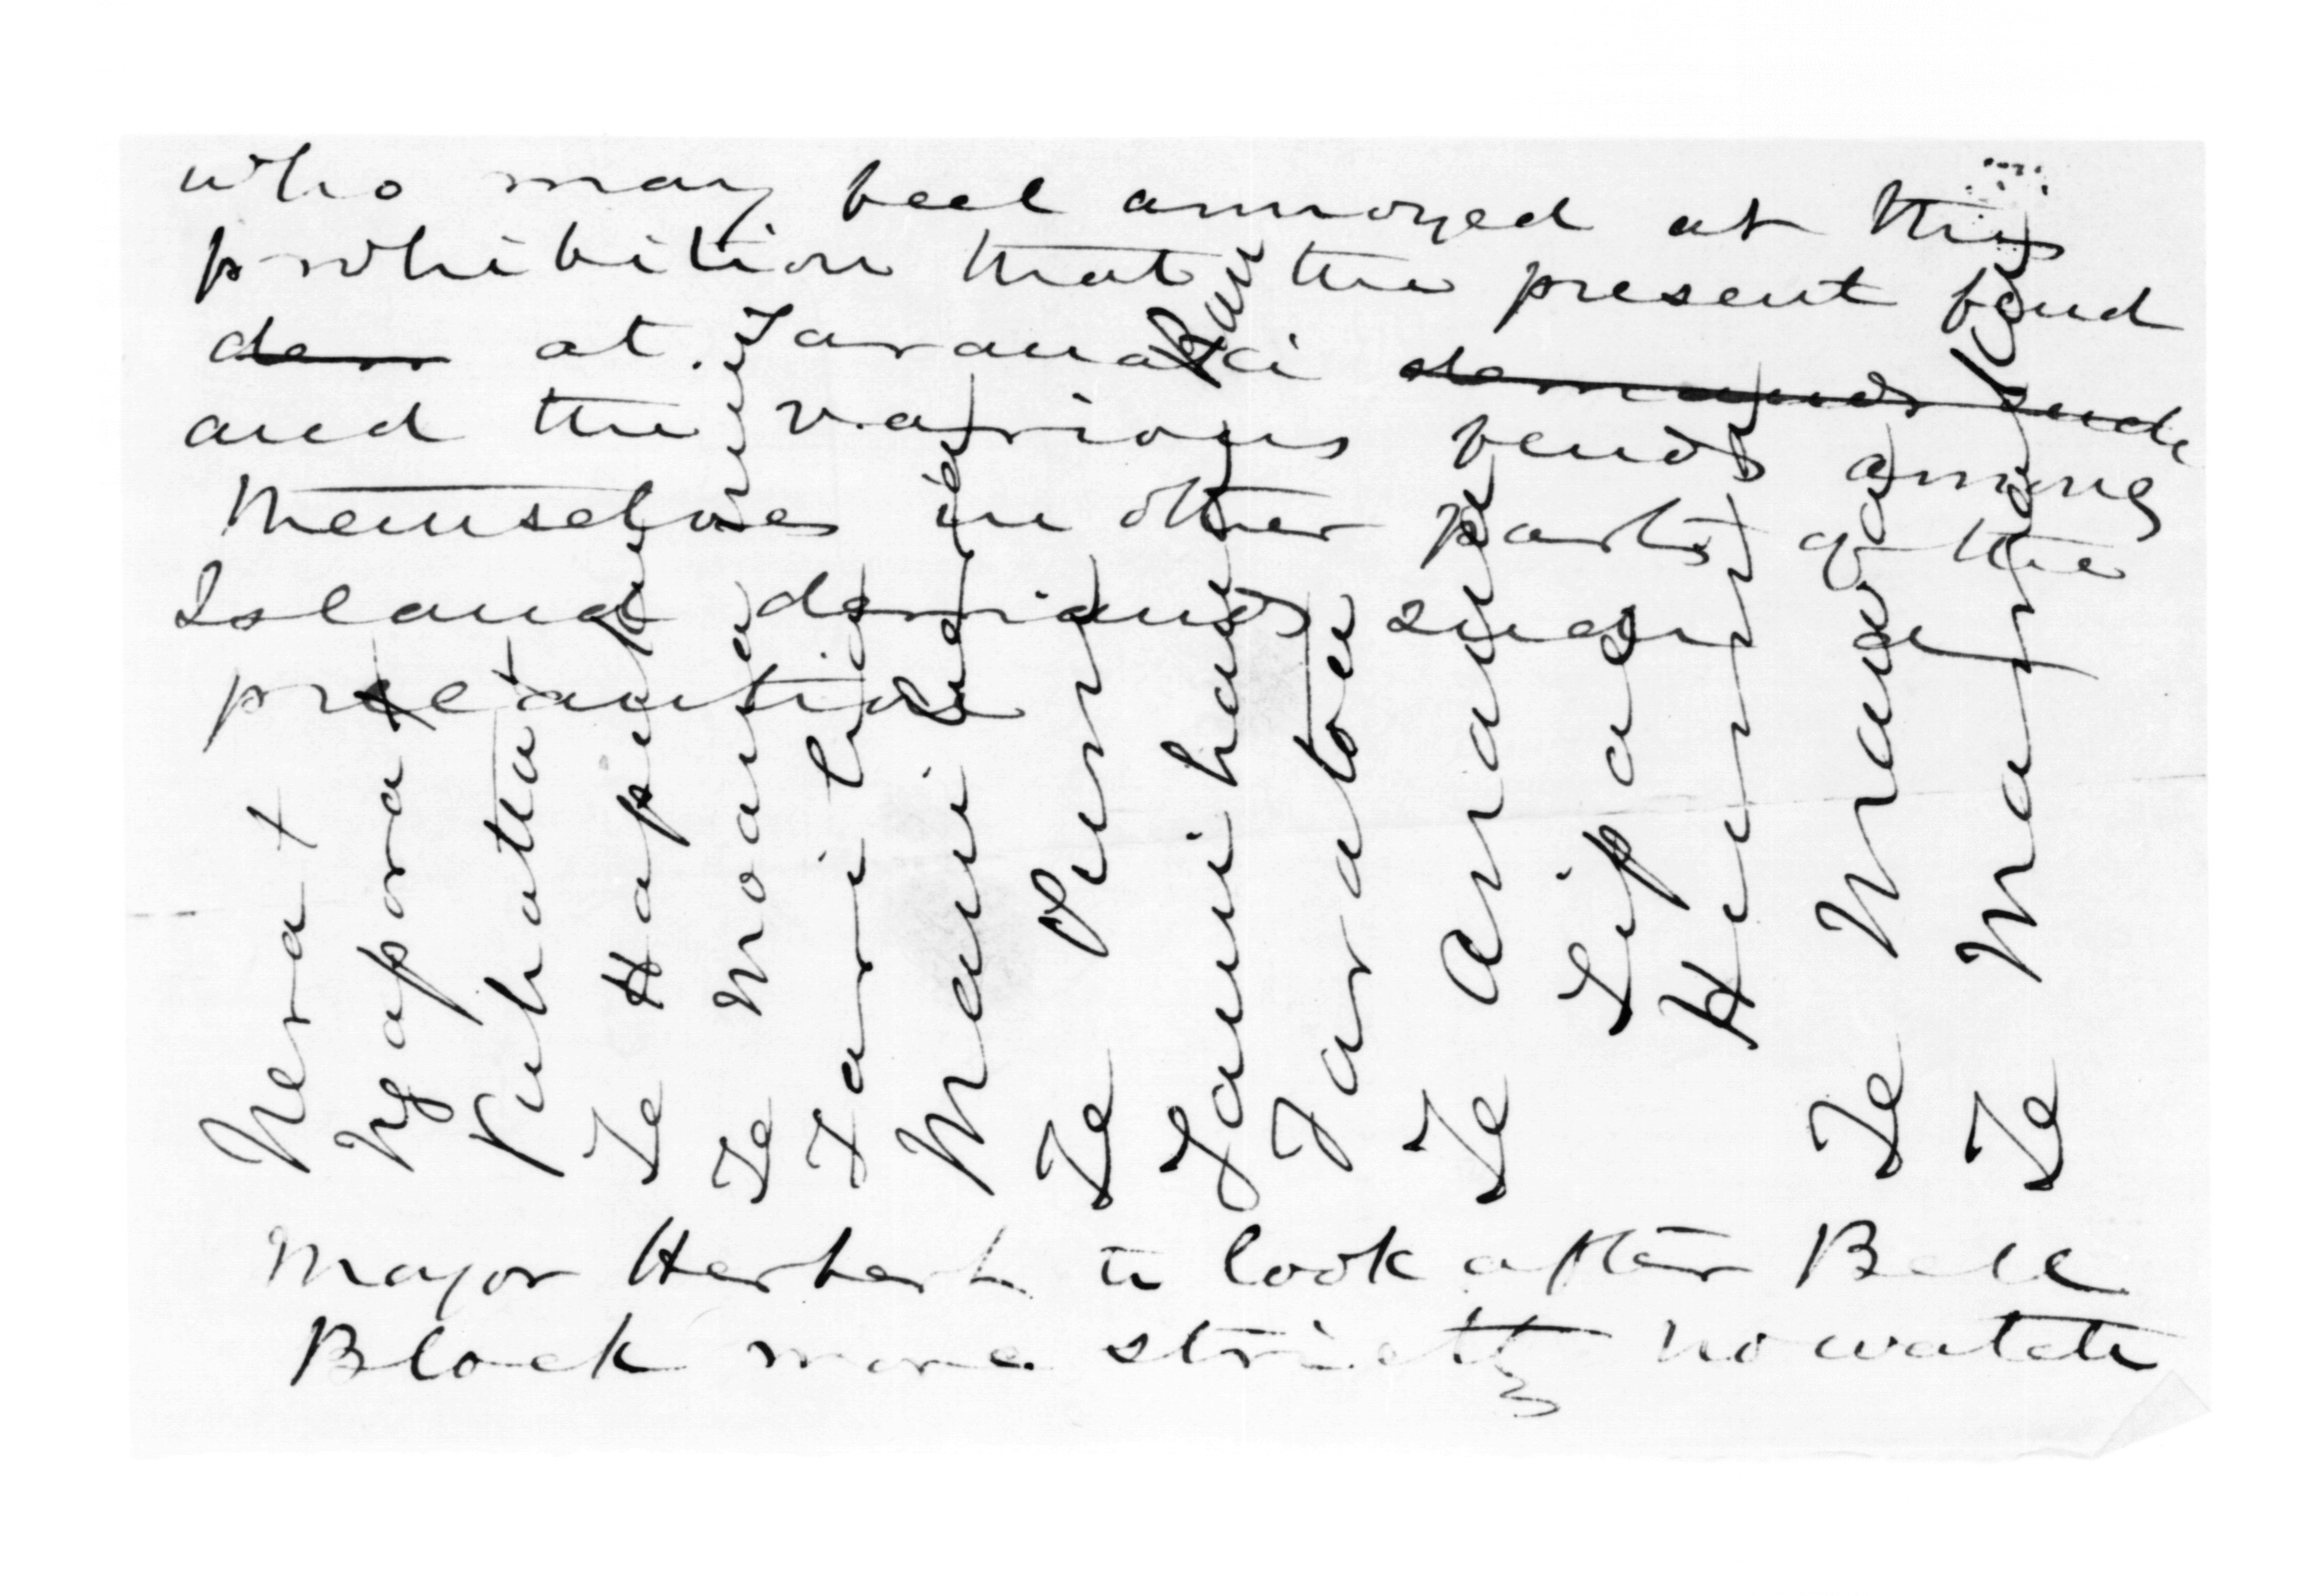 who may feel annoyed at this
prohibition that the present feud
at Taranaki
and the various feuds among
themselves in other parts of the
Island demands such
precaution
Nera +
Ngapora +
Puhata +
Te Hapuku
Te Moananui
Tarihia
Maui
Te Puni
Tamihana
Taratoa
Te Amawa
Tipae
Henri
Te Manawa
Te Manihera
Major Herbert to look after Bell
Block more strictly no watch